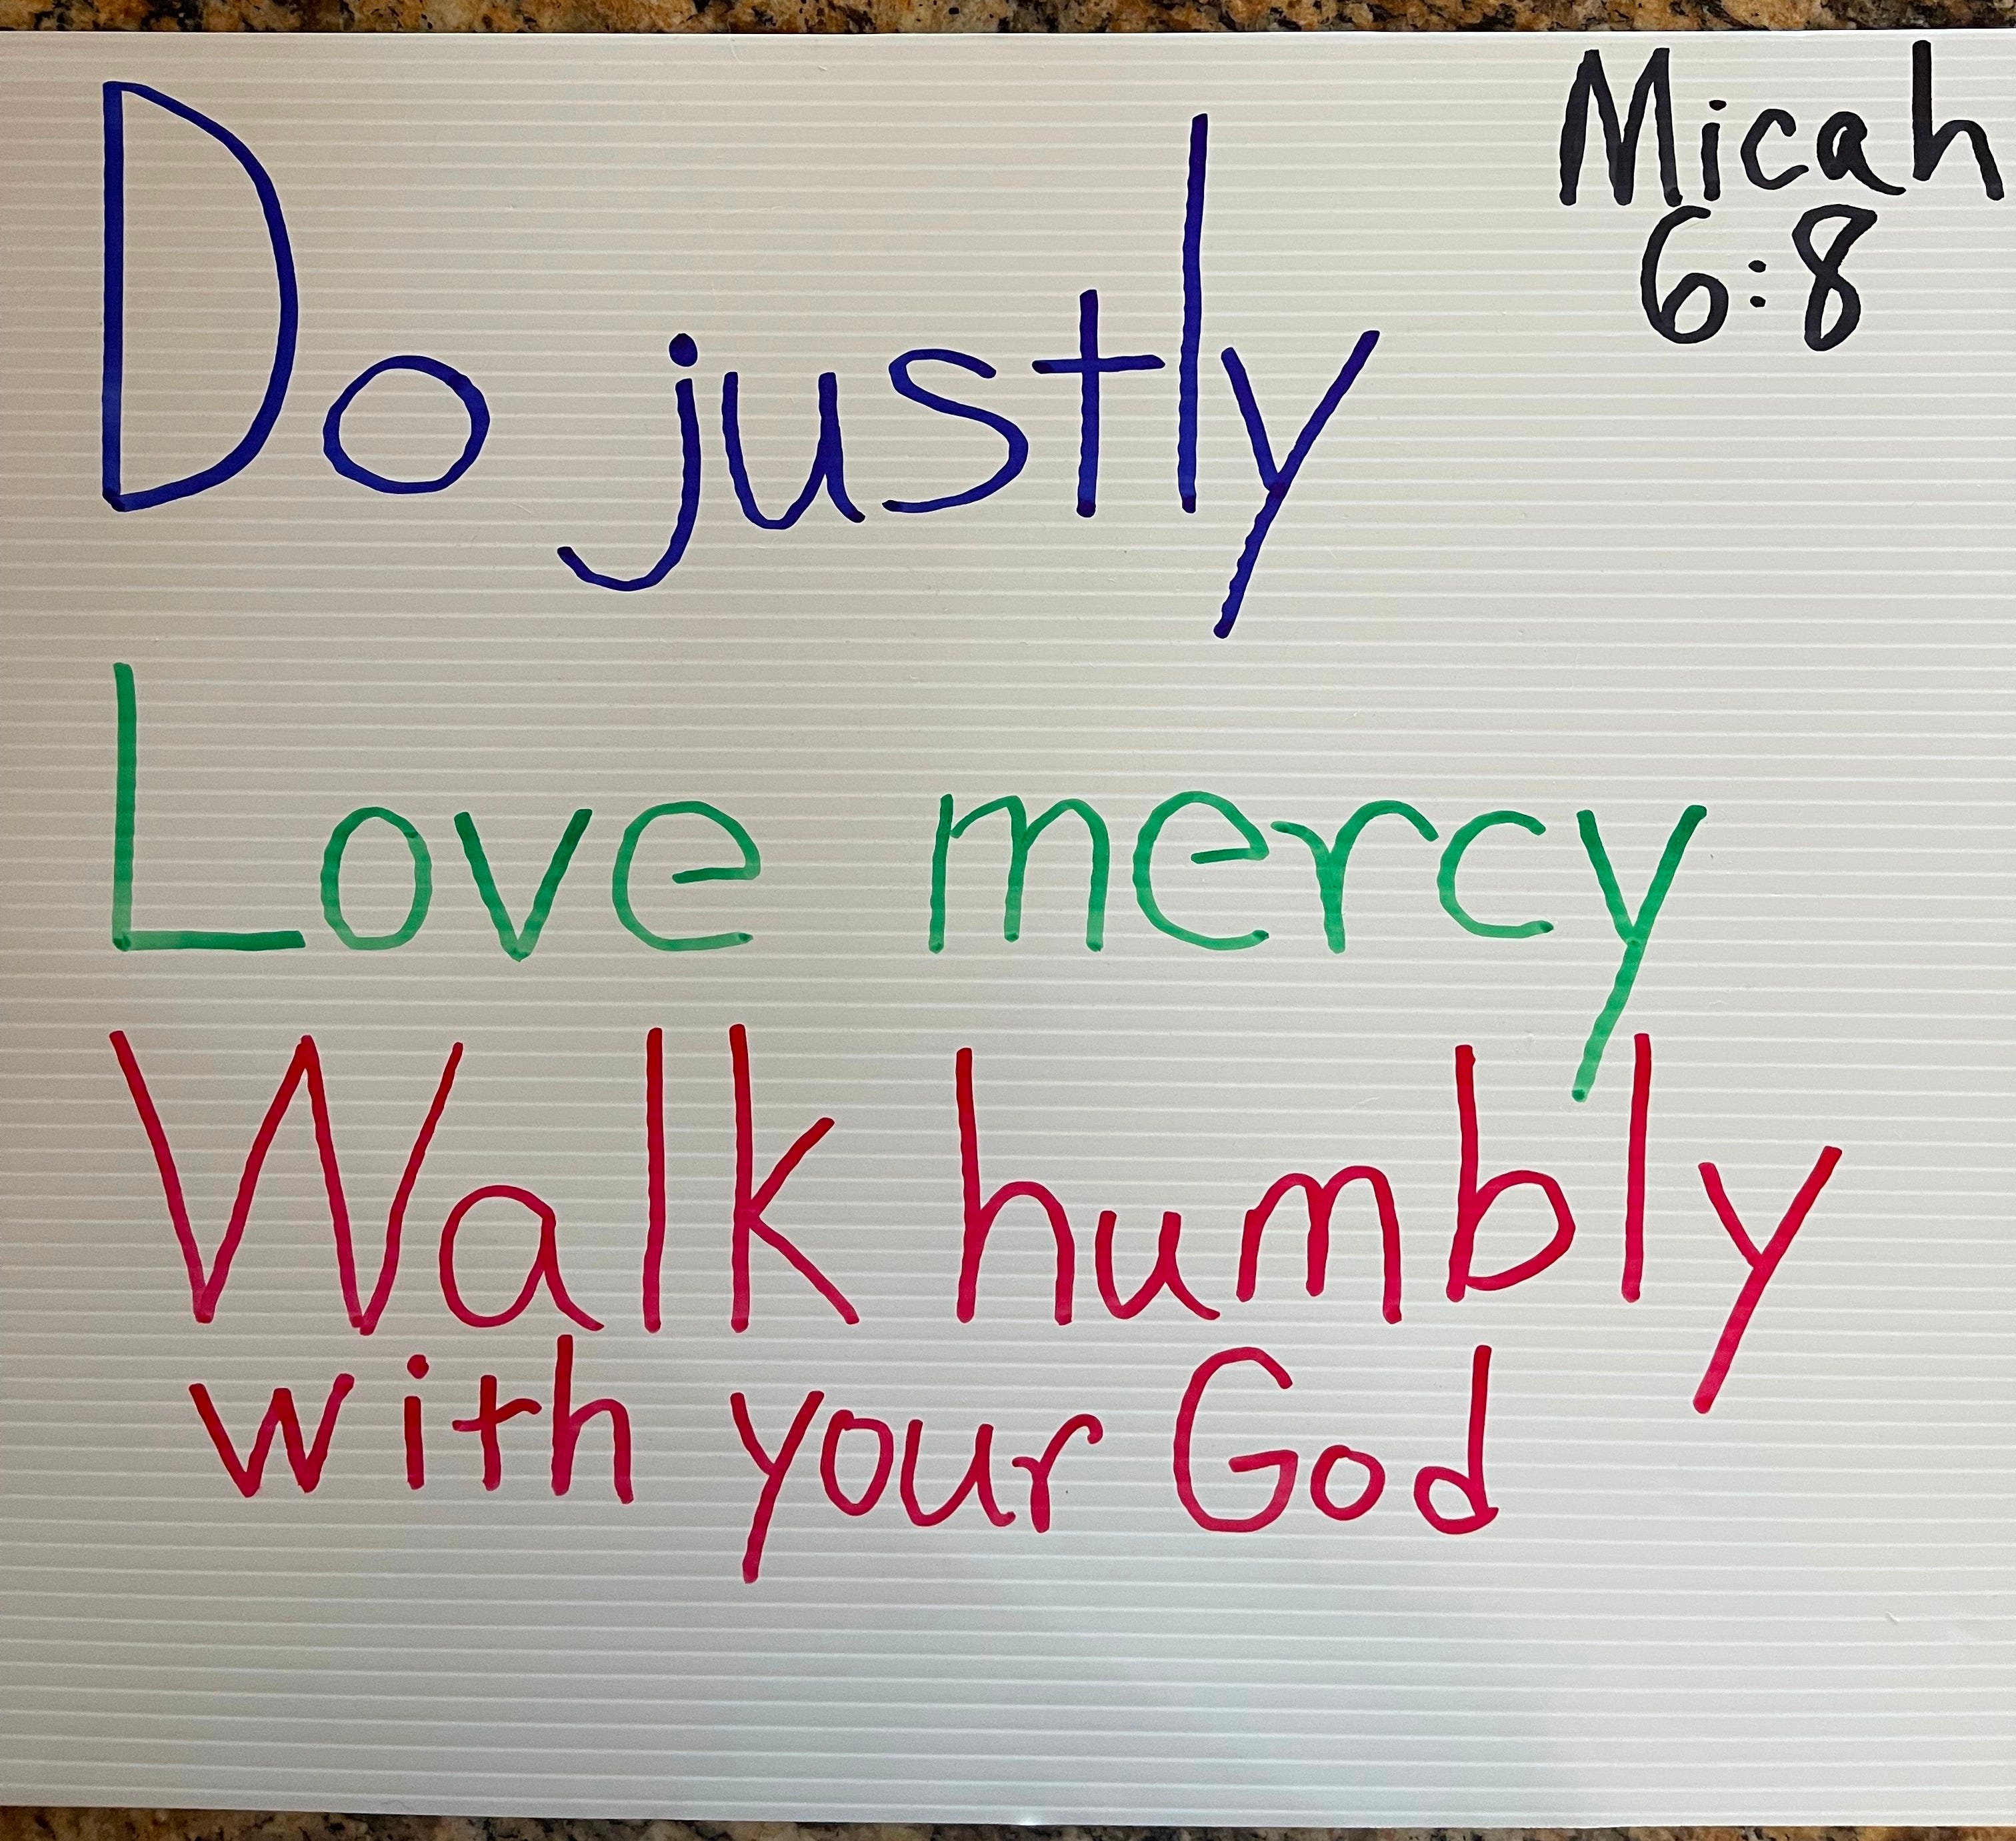 Micah
6:8
Do justly
Love mercy
Walk humbly
with your God